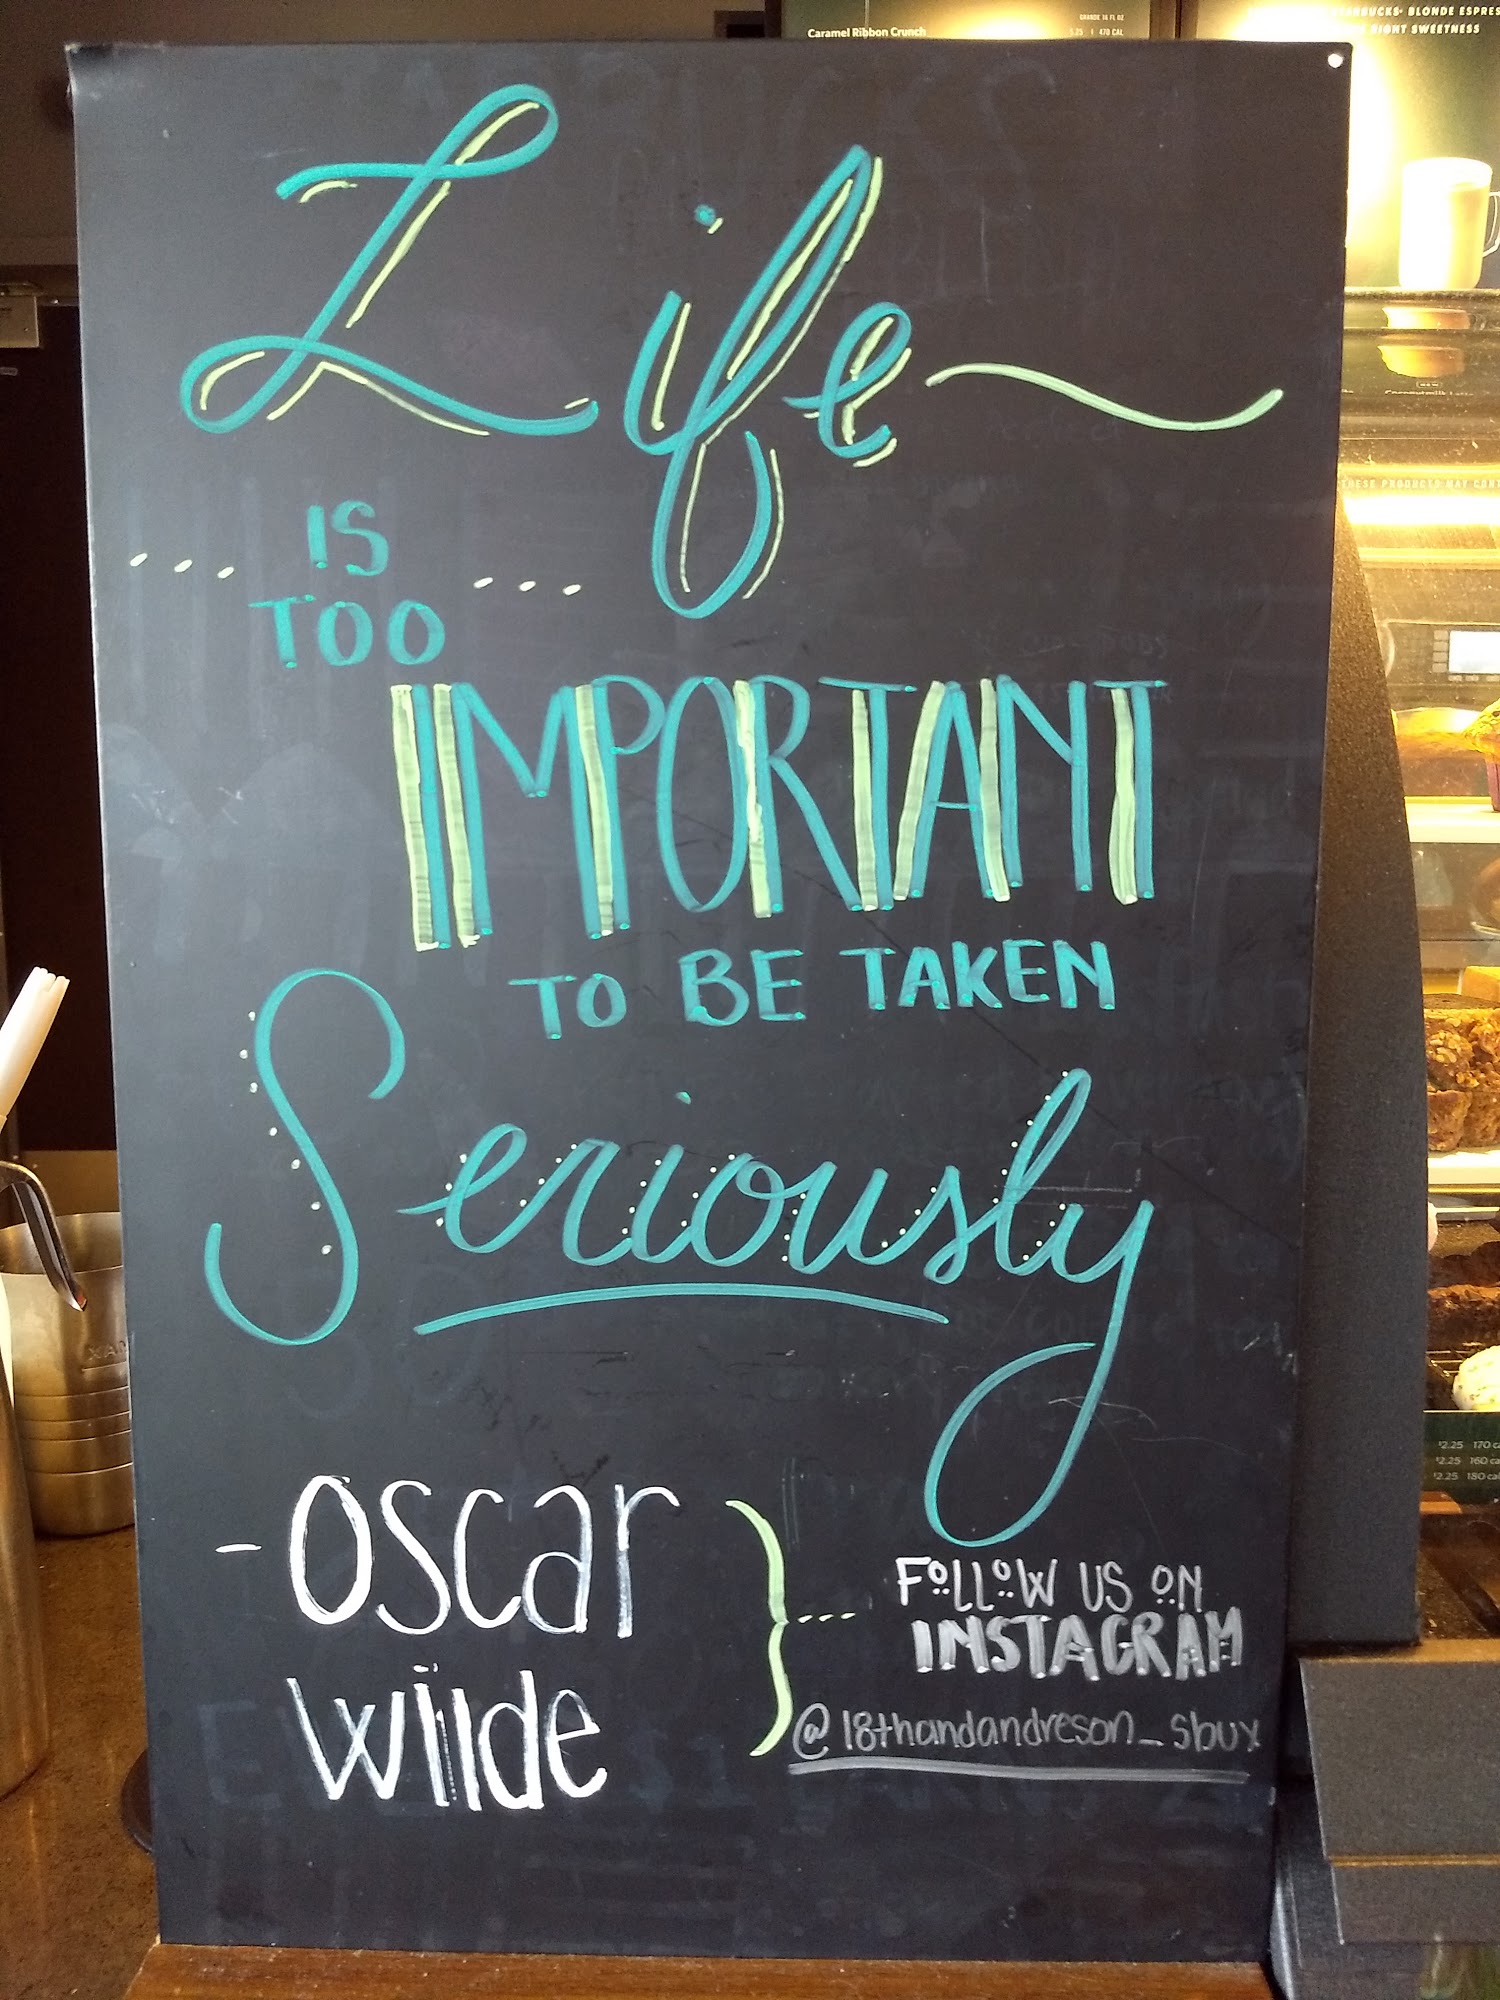 GRANDE 16 FL OZ
Caramel Ribbon Crunch
5.25 | 470 CAL
BLONDE ESPRES
SWEETNESS
Life
... IS ...
TOO
IMPORTANT
TO BE TAKEN
Seriously
- oscar
wilde
FOLLOW US ON
INSTAGRAM
@18thandandreson_sbux
THESE PRODUCTS MAY CONT
$2.25 170 ca
$2.25 160 ca
$2.25 180 cal